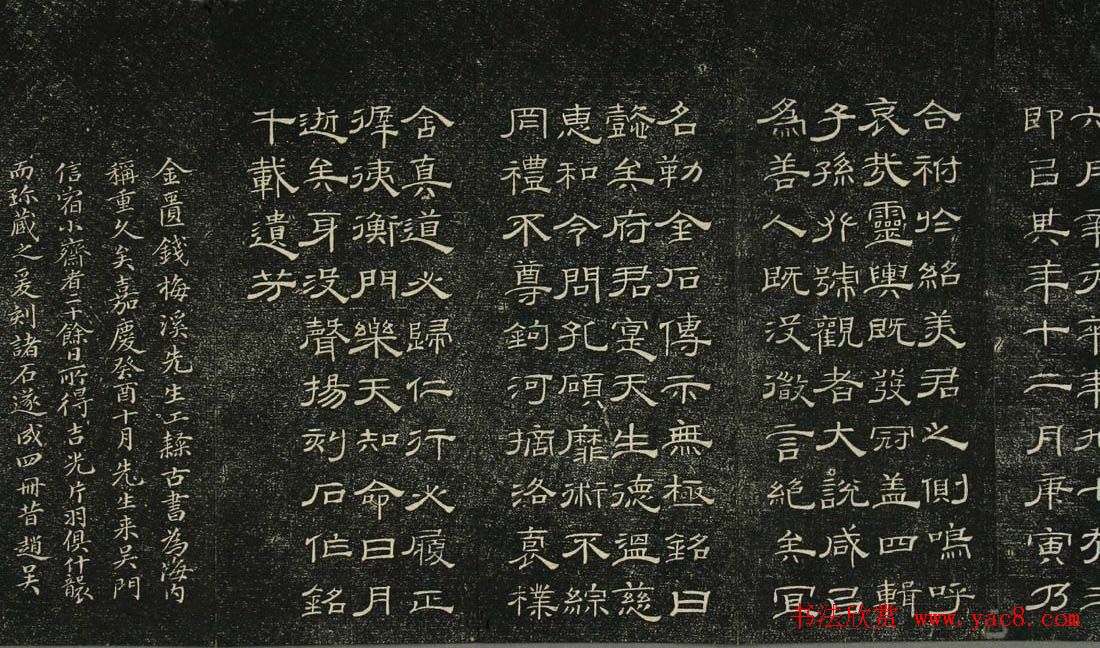 六月年九十有三
即以其年十二月庚寅乃
合祔於美君之側嗚呼
哀哉靈輿既發冠盖四輯
子孫號觀者大說咸曰
為善人既没微言絶矣宜
名勒金石傳示無極銘曰
懿矣府君寔天生德溫慈
惠和令問孔碩靡術不綜
罔禮不尊鉤河摘洛樸
含真道以歸仁行以履正
衡門樂天知命日月
逝矣身没聲揚刻石作銘
千載遺芳
金匱錢梅溪先生工隸古書為海内
稱重久矣嘉慶癸酉十月先生来吴門
信宿小齋者二十餘日所得吉光片羽俱什襲
而珍藏之爰刻諸石遂成四冊昔趙吴
书法欣赏 www.yac8.com